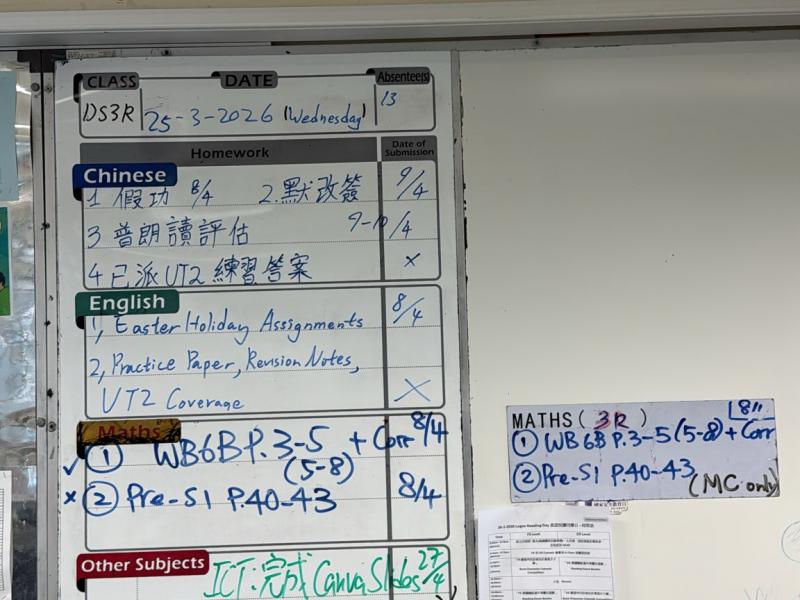 CLASS DATE Absentee(s)
DS3R 25-3-2026 (Wednesday) 13
Homework Date of Submission
Chinese
1 假功 8/4 2.默改簽 9/4
3 普朗讀評估 9-10/4
4 已派UT2 練習答案 ×
English
1, Easter Holiday Assignments 8/4
2, Practice Paper, Revision Notes,
UT2 Coverage ×
Maths
✓ ① WB6B P.3-5 (5-8) + Corr 8/4
× ② Pre-S1 P.40-43 8/4
Other Subjects
ICT:完成Canva Slides 27/4
MATHS ( 3R )
① WB6B P.3-5 (5-8) + Corr
② Pre-S1 P.40-43 (MC only)